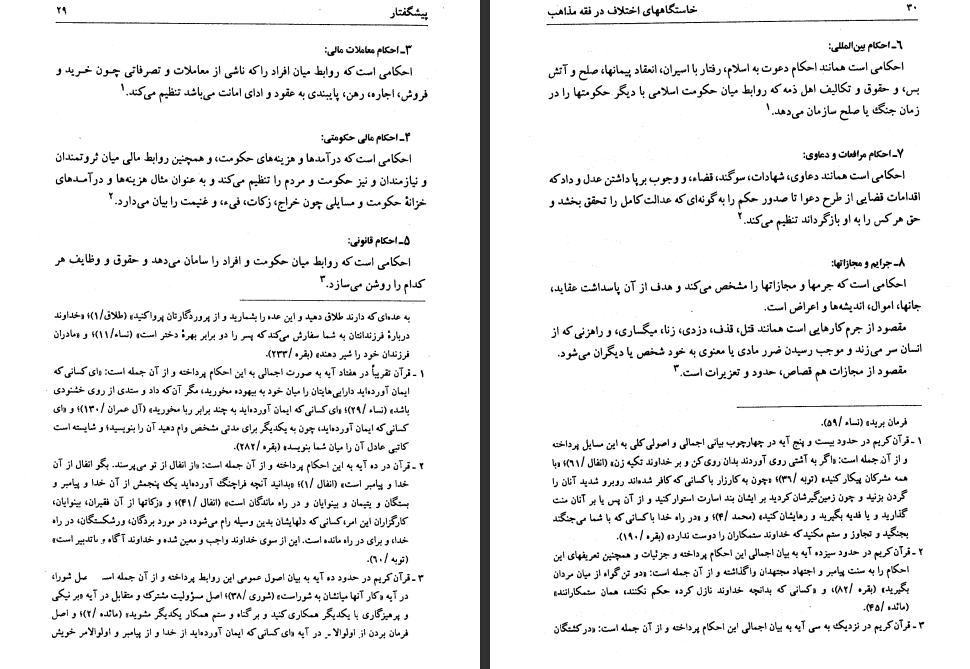 ۳۰
خاستگاههای اختلاف در فقه مذاهب
۶ـ احکام بین‌المللی:
احکامی است همانند احکام دعوت به اسلام، رفتار با اسیران، انعقاد پیمانها، صلح و آتش
بس، و حقوق و تکالیف اهل ذمه که روابط میان حکومت اسلامی با دیگر حکومتها را در
زمان جنگ یا صلح سازمان می‌دهد.۱
۷ـ احکام مرافعات و دعاوی:
احکامی است همانند دعاوی، شهادات، سوگند، قضاء، و وجوب برپا داشتن عدل و داد که
اقدامات قضایی از طرح دعوا تا صدور حکم را به گونه‌ای که عدالت کامل را تحقق بخشد و
حق هر کس را به او بازگرداند تنظیم می‌کند.۲
۸ـ جرایم و مجازاتها:
احکامی است که جرمها و مجازاتها را مشخص می‌کند و هدف از آن پاسداشت عقاید،
جانها، اموال، اندیشه‌ها و اعراض است.
مقصود از جرم کارهایی است همانند قتل، قذف، دزدی، زنا، میگساری، و راهزنی که از
انسان سر می‌زند و موجب رسیدن ضرر مادی یا معنوی به خود شخص یا دیگران می‌شود.
مقصود از مجازات هم قصاص، حدود و تعزیرات است.۳
فرمان برید» (نساء /۵۹).
۱ ـ قرآن کریم در حدود بیست و پنج آیه در چهارچوب بیانی اجمالی و اصولی کلی به این مسایل پرداخته
و از آن جمله است: «اگر به آشتی روی آوردند بدان روی کن و بر خداوند تکیه زن» (انفال /۶۱)؛ «با
همه مشرکان پیکار کنید» (توبه /۳۶)؛ «چون به کارزار با کسانی که کافر شده‌اند روبرو شدید آنان را
گردن بزنید و چون زمین‌گیرشان کردید بر ایشان بند اسارت استوار کنید و از آن پس یا بر آنان منت
گذارید و یا فدیه بگیرید و رهایشان کنید» (محمد /۴)؛ و «در راه خدا با کسانی که با شما می‌جنگند
بجنگید و تجاوز و ستم مکنید که خداوند ستمکاران را دوست ندارد» (بقره /۱۹۰).
۲ ـ قرآن کریم در حدود سیزده آیه به بیان اجمالی این احکام پرداخته و جزئیات و همچنین تعریفهای این
احکام را به سنت پیامبر و اجتهاد مجتهدان واگذاشته و از آن جمله است: «دو تن گواه از میان مردان
بگیرید» (بقره /۸۲)، و «کسانی که بدانچه خداوند نازل کرده حکم نکنند، همان ستمکارانند»
(مائده /۴۵).
۳ ـ قرآن کریم در نزدیک به سی آیه به بیان اجمالی این احکام پرداخته و از آن جمله است: «در کشتگان
پیشگفتار
۲۹
۳ـ احکام معاملات مالی:
احکامی است که روابط میان افراد را که ناشی از معاملات و تصرفاتی چون خرید و
فروش، اجاره، رهن، پایبندی به عقود و ادای امانت می‌باشد تنظیم می‌کند.۱
۴ـ احکام مالی حکومتی:
احکامی است که درآمدها و هزینه‌های حکومت، و همچنین روابط مالی میان ثروتمندان
و نیازمندان و نیز حکومت و مردم را تنظیم می‌کند و به عنوان مثال هزینه‌ها و درآمدهای
خزانهٔ حکومت و مسایلی چون خراج، زکات، فیء، و غنیمت را بیان می‌دارد.۲
۵ـ احکام قانونی:
احکامی است که روابط میان حکومت و افراد را سامان می‌دهد و حقوق و وظایف هر
کدام را روشن می‌سازد.۳
به عده‌ای که دارند طلاق دهید و این عده را بشمارید و از پروردگارتان پروا کنید» (طلاق/۱)؛ «خداوند
دربارهٔ فرزندانتان به شما سفارش می‌کند که پسر را دو برابر بهرهٔ دختر است» (نساء/۱۱)؛ و «مادران
فرزندان خود را شیر دهند» (بقره /۲۳۳).
۱ ـ قرآن تقریباً در هفتاد آیه به صورت اجمالی به این احکام پرداخته و از آن جمله است: «ای کسانی که
ایمان آورده‌اید دارایی‌هایتان را میان خود به بیهوده مخورید، مگر آن که داد و ستدی از روی خشنودی
باشد» (نساء /۲۹)؛ «ای کسانی که ایمان آورده‌اید به چند برابر ربا مخورید» (آل عمران /۱۳۰)؛ و «ای
کسانی که ایمان آورده‌اید، چون به یکدیگر برای مدتی مشخص وام دهید آن را بنویسید؛ و شایسته است
کاتبی عادل آن را میان شما بنویسد» (بقره /۲۸۲).
۲ ـ قرآن در ده آیه به این احکام پرداخته و از آن جمله است: «از انفال از تو می‌پرسند. بگو انفال از آن
خدا و پیامبر است» (انفال /۱)؛ «بدانید آنچه فراچنگ آورده‌اید یک پنجمش از آن خدا و پیامبر و
بستگان و یتیمان و بینوایان و در راه ماندگان است» (انفال /۴۱)؛ و «زکاتها از آن فقیران، بینوایان،
کارگزاران این امر، کسانی که دلهایشان بدین وسیله رام می‌شود، در مورد بردگان، ورشکستگان، در راه
خدا، و برای در راه مانده است. این از سوی خداوند واجب و معین شده و خداوند آگاه و باتدبیر است»
(توبه /۶۰).
۳ ـ قرآن کریم در حدود ده آیه به بیان اصول عمومی این روابط پرداخته و از آن جمله اسـ ـل شورا،
در آیه «کار آنها میانشان به شوراست» (شوری /۳۸)؛ اصل مسؤولیت مشترک و متقابل در آیه «بر نیکی
و پرهیزگاری با یکدیگر همکاری کنید و بر گناه و ستم همکار یکدیگر مشوید» (مائده /۲)؛ و اصل
فرمان بردن از اولوالا ـر در آیه «ای کسانی که ایمان آورده‌اید از خدا و از پیامبر و اولوالامر خویش